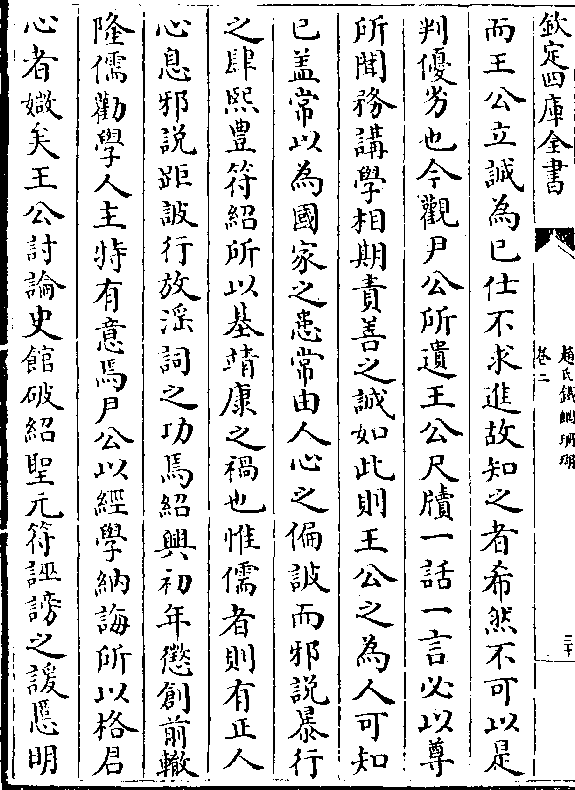 欽定四庫全書
趙氏鐵網珊瑚
卷二
二十
而王公立誠為已仕不求進故知之者希然不可以是
判優劣也今觀尹公所遺王公尺牘一話一言必以尊
所聞務講學相期責善之誠如此則王公之為人可知
已盖常以為國家之患常由人心之偏詖而邪說暴行
之肆熙豊符紹所以基靖康之禍也惟儒者則有正人
心息邪說距詖行放淫詞之功焉紹興初年懲創前轍
隆儒勸學人主特有意焉尹公以經學納誨所以格君
心者媺矣王公討論史館破紹聖元符誣謗之謾慝明